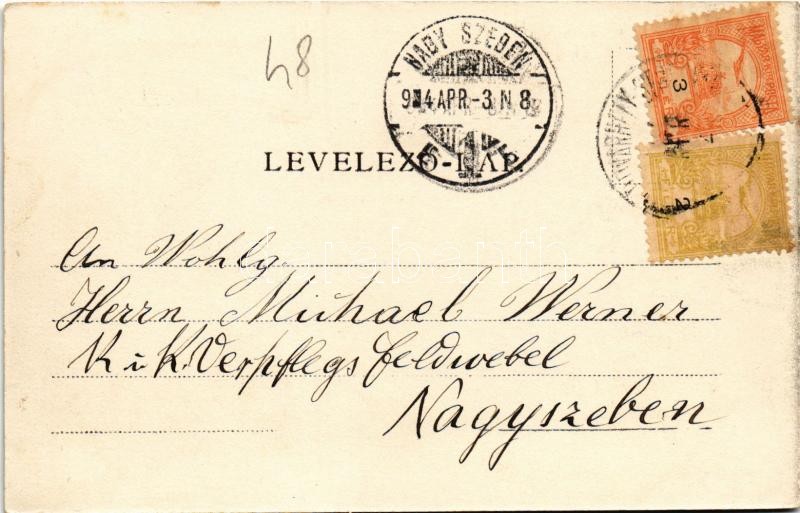 48
NAGY SZEBEN
904 APR.-3 N 8
LEVELEZŐ-LAP.
An Wohlg.
Herrn Michael Werner
K u K. Verpflegs feldwebel
Nagyszeben